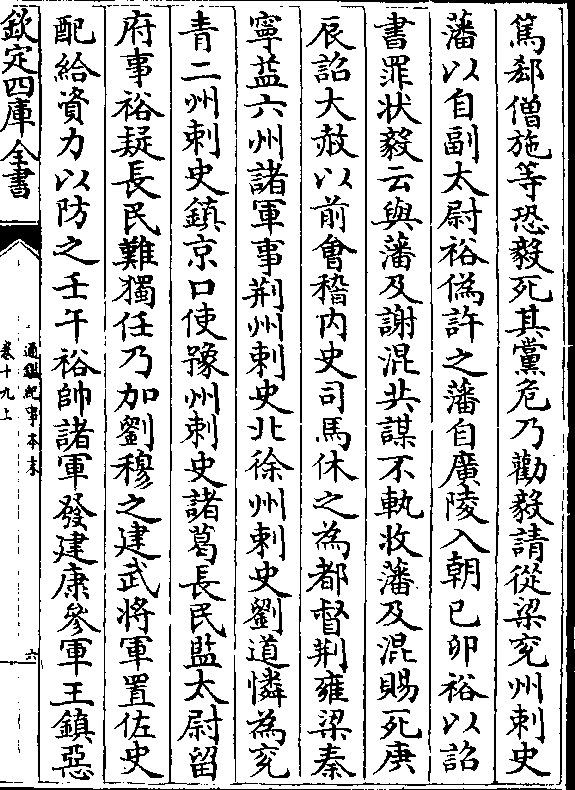 篤郄僧施等恐毅死其黨危乃勸毅請從梁兗州刺史
藩以自副太尉裕偽許之藩自廣陵入朝己卯裕以詔
書罪狀毅云與藩及謝混共謀不軌收藩及混賜死庚
辰詔大赦以前會稽內史司馬休之為都督荆雍梁秦
寧益六州諸軍事荆州刺史北徐州刺史劉道憐為兗
青二州刺史鎮京口使豫州刺史諸葛長民監太尉留
府事裕疑長民難獨任乃加劉穆之建武將軍置佐史
配給資力以防之壬午裕帥諸軍發建康參軍王鎮惡
欽定四庫全書
通鑑紀事本末
卷十九上
六